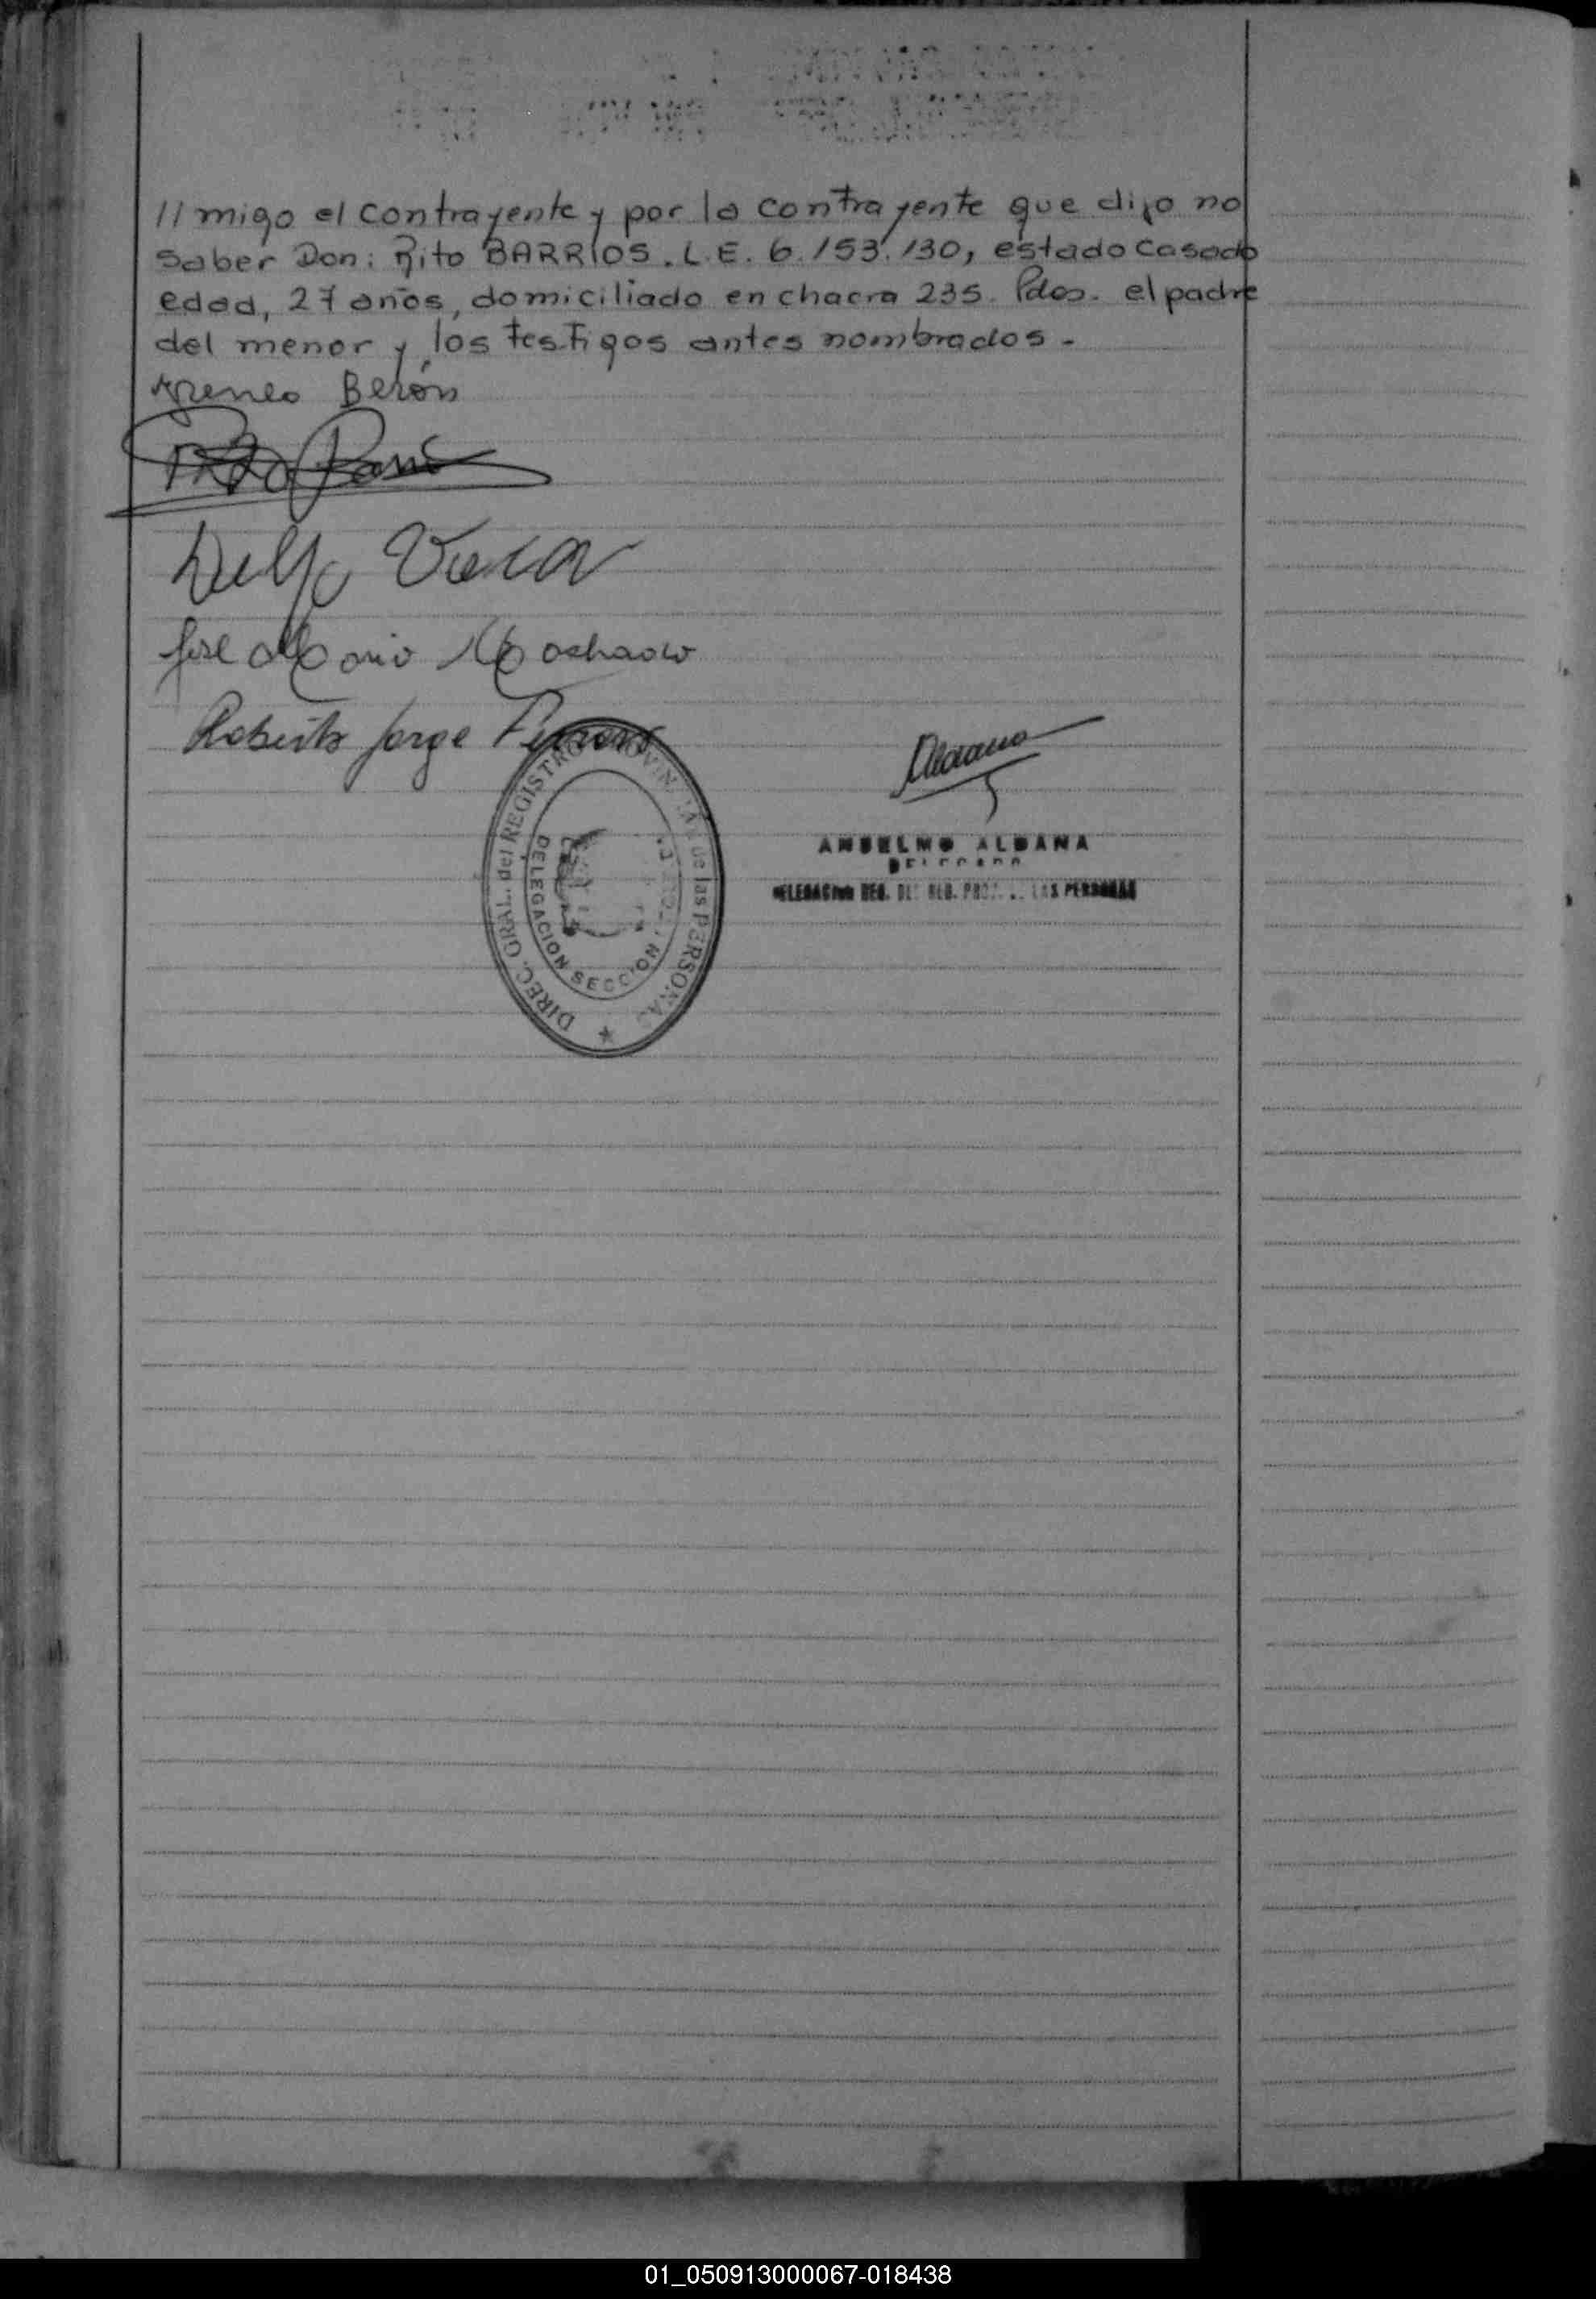 // migo el contrayente y por la contrayente que dijo no
saber Don: Rito BARRIOS. L.E. 6.153.130, estado casado
edad, 27 años, domiciliado en chacra 235. Pdos. el padre
del menor y los testigos antes nombrados.-
Ireneo Berón
Rito
Delfo
José Machado
Roberto Jorge
Aldana
ANSELMO ALDANA
DELEGADO
DELEGACION REG. DEL REG. PROV. LAS PERSONAS
DIREC. GRAL. del REGISTRO PROVINCIAL de las PERSONAS
DELEGACION SECCION
01_050913000067-018438